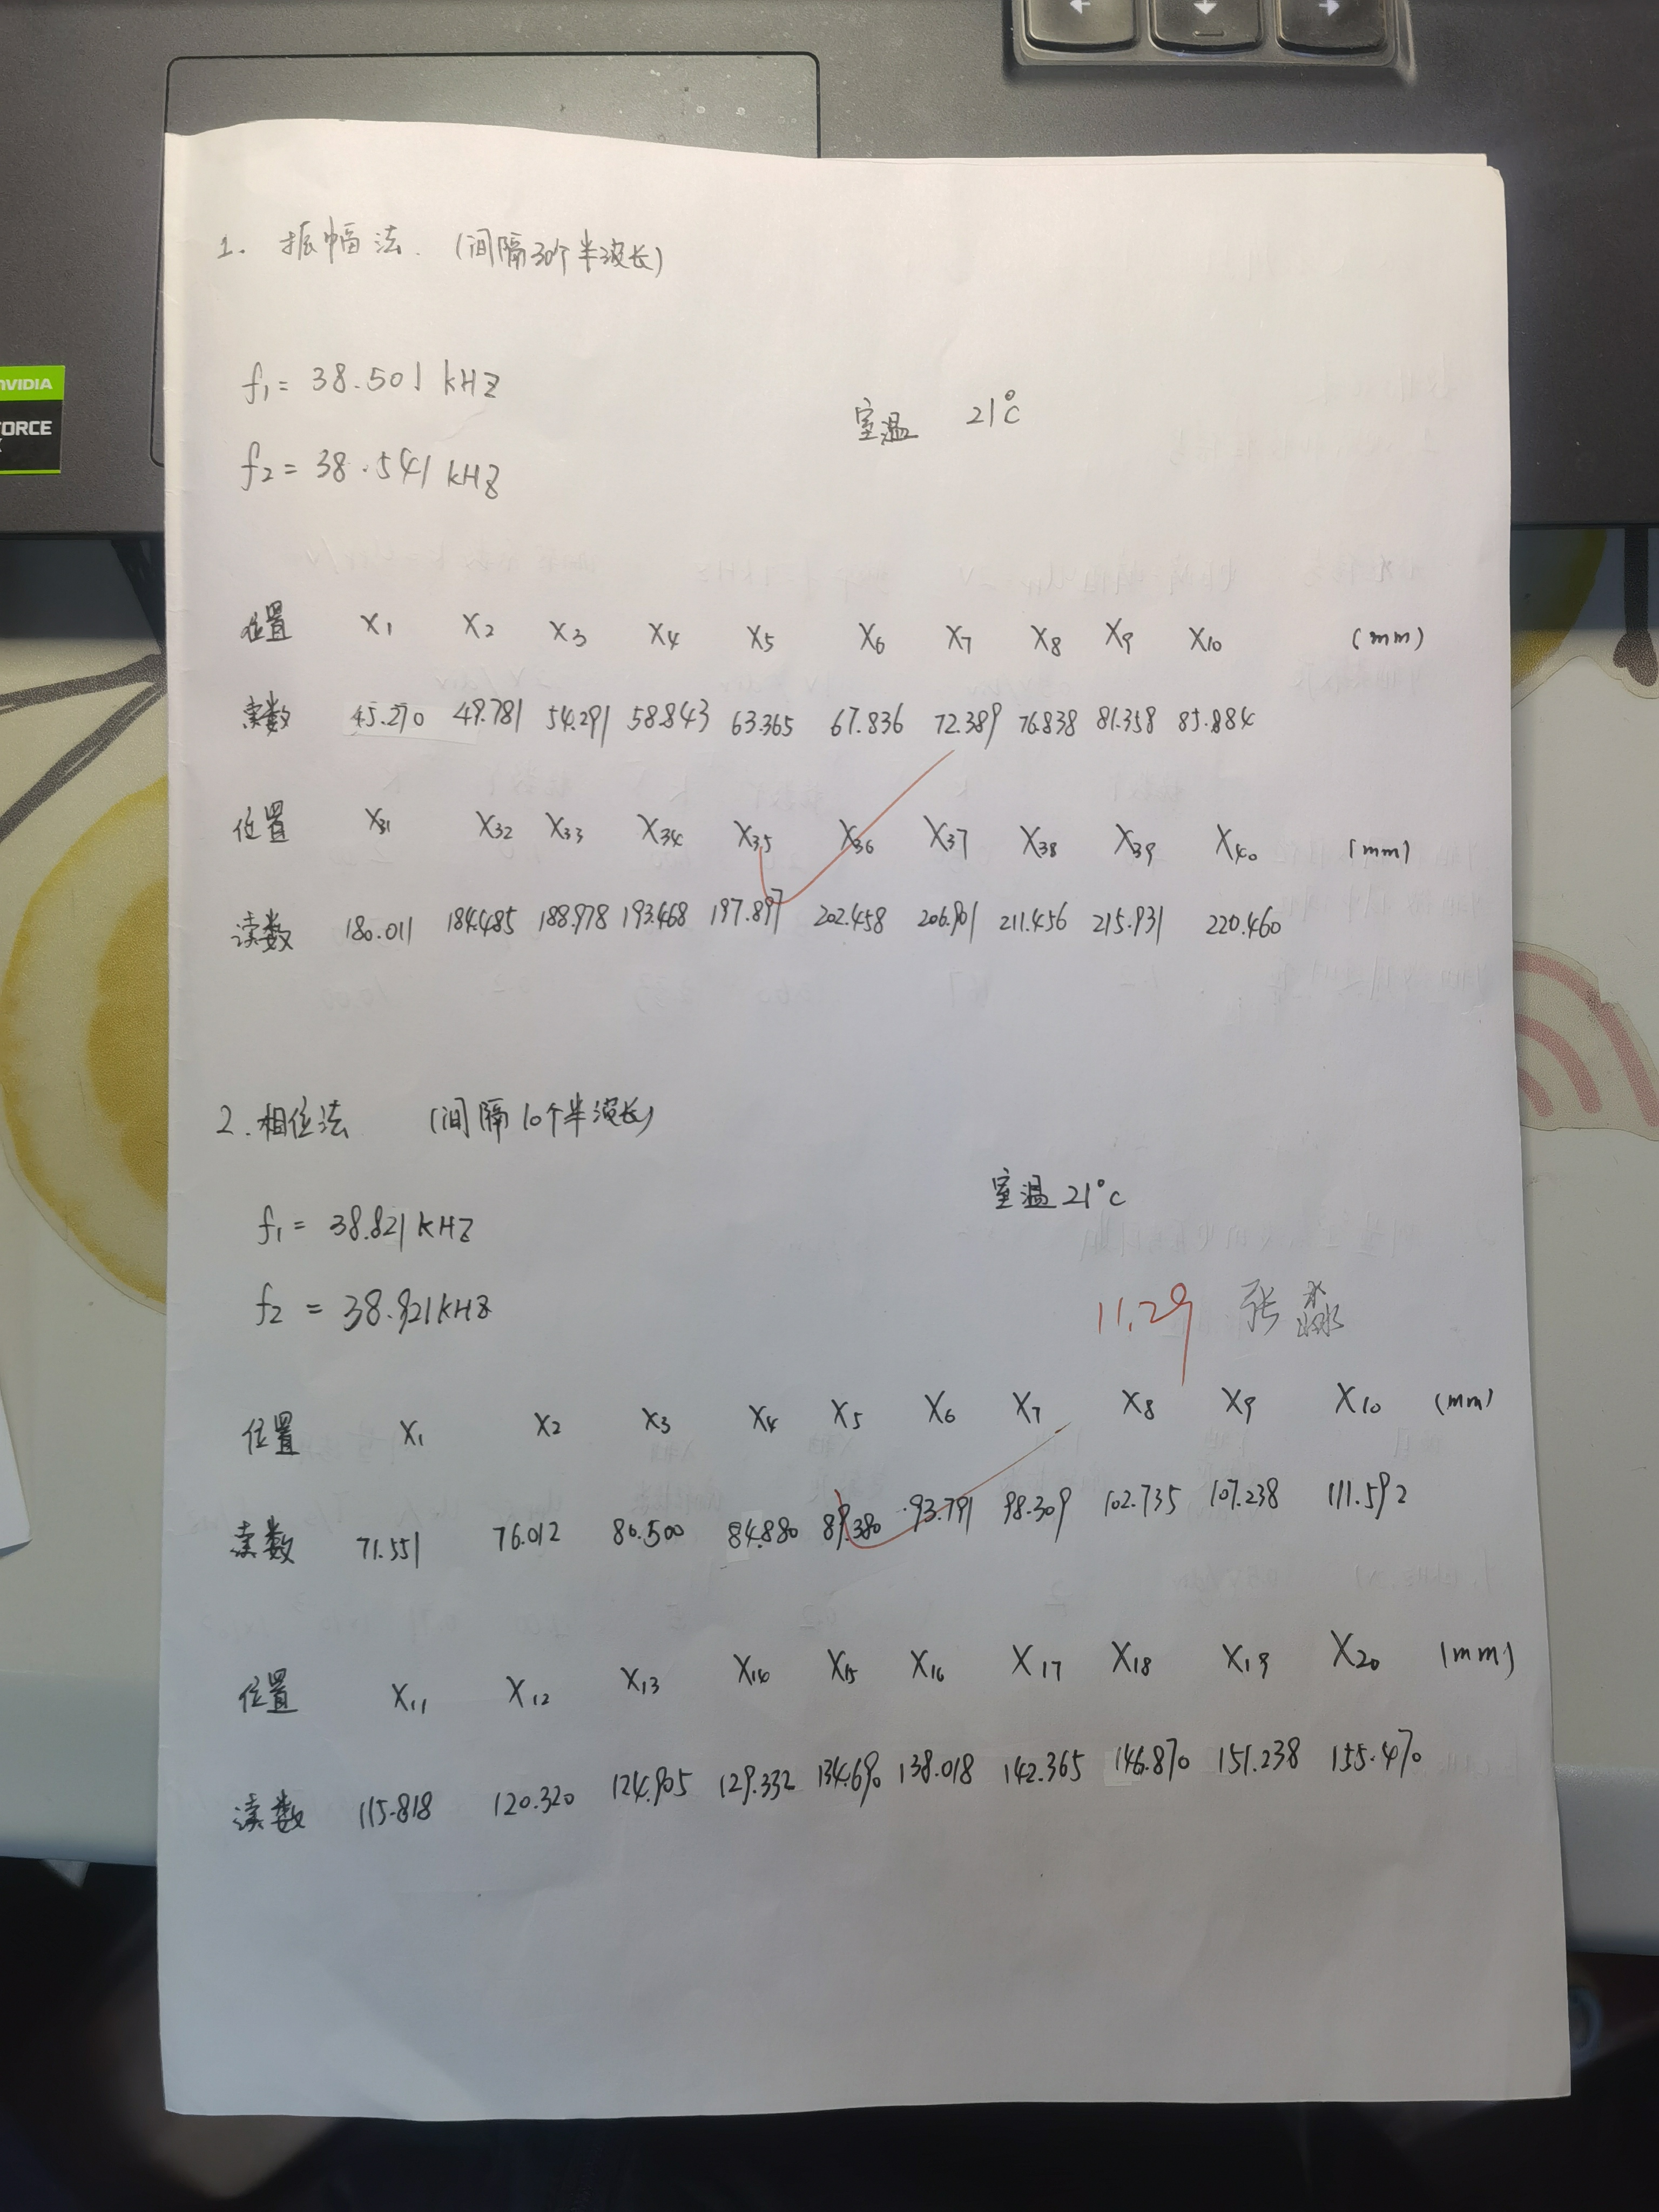 NVIDIA
FORCE
1. 振幅法. (间隔30个半波长)
f₁= 38.501 kHZ
室温 21℃
f₂= 38.541 kHZ
位置 X₁ X₂ X₃ X₄ X₅ X₆ X₇ X₈ X₉ X₁₀ (mm)
读数 45.270 49.781 54.291 58.843 63.365 67.836 72.389 76.838 81.358 85.884
位置 X₃₁ X₃₂ X₃₃ X₃₄ X₃₅ X₃₆ X₃₇ X₃₈ X₃₉ X₄₀ (mm)
读数 180.011 184.485 188.978 193.468 197.897 202.458 206.901 211.456 215.931 220.460
2. 相位法 (间隔10个半波长)
室温 21℃
f₁= 38.821 kHZ
f₂ = 38.921 kHZ
11.29 张淼
位置 X₁ X₂ X₃ X₄ X₅ X₆ X₇ X₈ X₉ X₁₀ (mm)
读数 71.551 76.012 80.500 84.880 89.380 93.791 98.309 102.735 107.238 111.592
位置 X₁₁ X₁₂ X₁₃ X₁₄ X₁₅ X₁₆ X₁₇ X₁₈ X₁₉ X₂₀ (mm)
读数 115.818 120.320 124.905 129.332 134.690 138.018 142.365 146.870 151.238 155.470